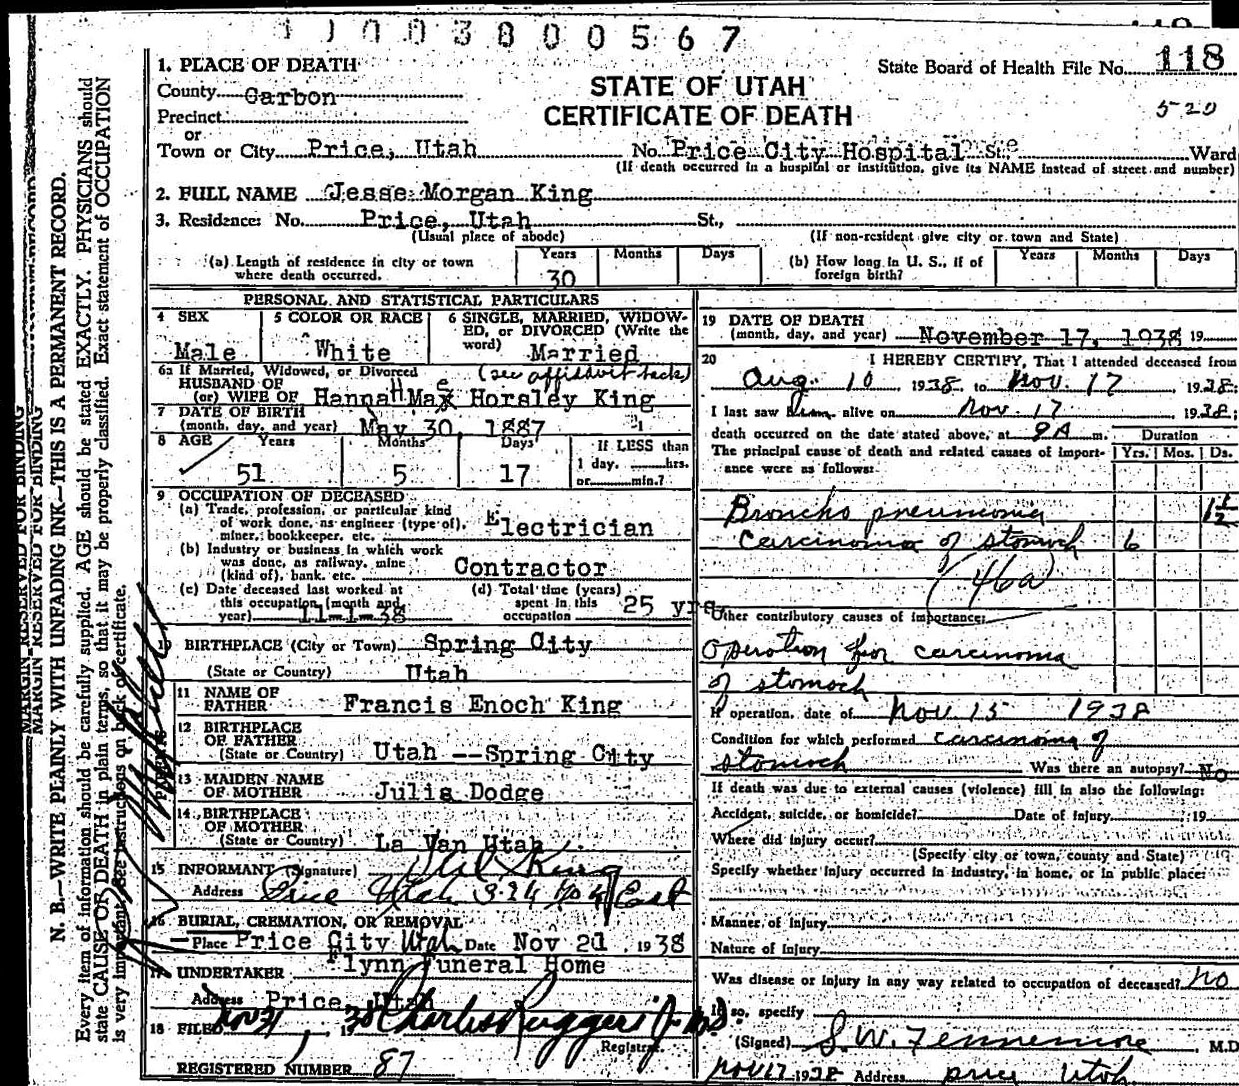 1 1 0 0 3 8 0 0 5 6 7
State Board of Health File No. 118
5-20
STATE OF UTAH
CERTIFICATE OF DEATH
1. PLACE OF DEATH
County Carbon
Precinct
or
Town or City Price, Utah No. Price City Hospital St., Ward
(If death occurred in a hospital or institution, give its NAME instead of street and number)
2. FULL NAME Jesse Morgan King
3. Residence: No. Price, Utah St.,
(Usual place of abode) (If non-resident give city or town and State)
(a) Length of residence in city or town where death occurred. Years 30 Months Days
(b) How long in U. S., if of foreign birth? Years Months Days
PERSONAL AND STATISTICAL PARTICULARS
4 SEX Male
5 COLOR OR RACE White
6 SINGLE, MARRIED, WIDOWED, or DIVORCED (Write the word) Married
6a If Married, Widowed, or Divorced (see affidavit back)
HUSBAND OF
(or) WIFE OF Hannah Mae Horsley King
7 DATE OF BIRTH
(month, day, and year) May 30, 1887
8 AGE Years 51 Months 5 Days 17 If LESS than 1 day, hrs. or min.?
9 OCCUPATION OF DECEASED
(a) Trade, profession, or particular kind of work done, as engineer (type of), miner, bookkeeper, etc. Electrician
(b) Industry or business in which work was done, as railway, mine (kind of), bank, etc. Contractor
(c) Date deceased last worked at this occupation (month and year) 11-1-38
(d) Total time (years) spent in this occupation 25 yrs.
BIRTHPLACE (City or Town) Spring City
(State or Country) Utah
11 NAME OF FATHER Francis Enoch King
12 BIRTHPLACE OF FATHER
(State or Country) Utah --Spring City
13 MAIDEN NAME OF MOTHER Julia Dodge
14 BIRTHPLACE OF MOTHER
(State or Country) La Van Utah
15 INFORMANT (Signature) King
Address Price Utah East
16 BURIAL, CREMATION, OR REMOVAL
Place Price City Utah Date Nov 21 1938
UNDERTAKER Flynn Funeral Home
Address Price, Utah
18 FILED Nov 21, 1938 Charles Ruggeri Jr. M.D.
Registrar.
REGISTERED NUMBER 87
19 DATE OF DEATH
(month, day, and year) November 17, 1938 19
20 I HEREBY CERTIFY, That I attended deceased from
Aug. 10, 1938, to Nov. 17 1938;
I last saw him alive on Nov. 17 1938;
death occurred on the date stated above, at 9 A m. Duration
The principal cause of death and related causes of importance were as follows: Yrs. Mos. Ds.
Broncho pneumonia 1 1/2
carcinoma of stomach 6
(46a)
Other contributory causes of importance:
Operation for carcinoma
of stomach
If operation, date of Nov 15 1938
Condition for which performed carcinoma of
stomach Was there an autopsy? No
If death was due to external causes (violence) fill in also the following:
Accident, suicide, or homicide? Date of injury , 19
Where did injury occur?
(Specify city or town, county and State)
Specify whether injury occurred in industry, in home, or in public place:
Manner of injury
Nature of injury
Was disease or injury in any way related to occupation of deceased? No
If so, specify
(Signed) S. W. Fennemore M.D.
Nov 17 1938 Address Price Utah
MARGIN RESERVED FOR BINDING
MARGIN RESERVED FOR BINDING
N. B.—WRITE PLAINLY WITH UNFADING INK—THIS IS A PERMANENT RECORD.
Every item of information should be carefully supplied. AGE should be stated EXACTLY. PHYSICIANS should
state CAUSE OF DEATH in plain terms, so that it may be properly classified. Exact statement of OCCUPATION
is very important. See instructions on back of certificate.